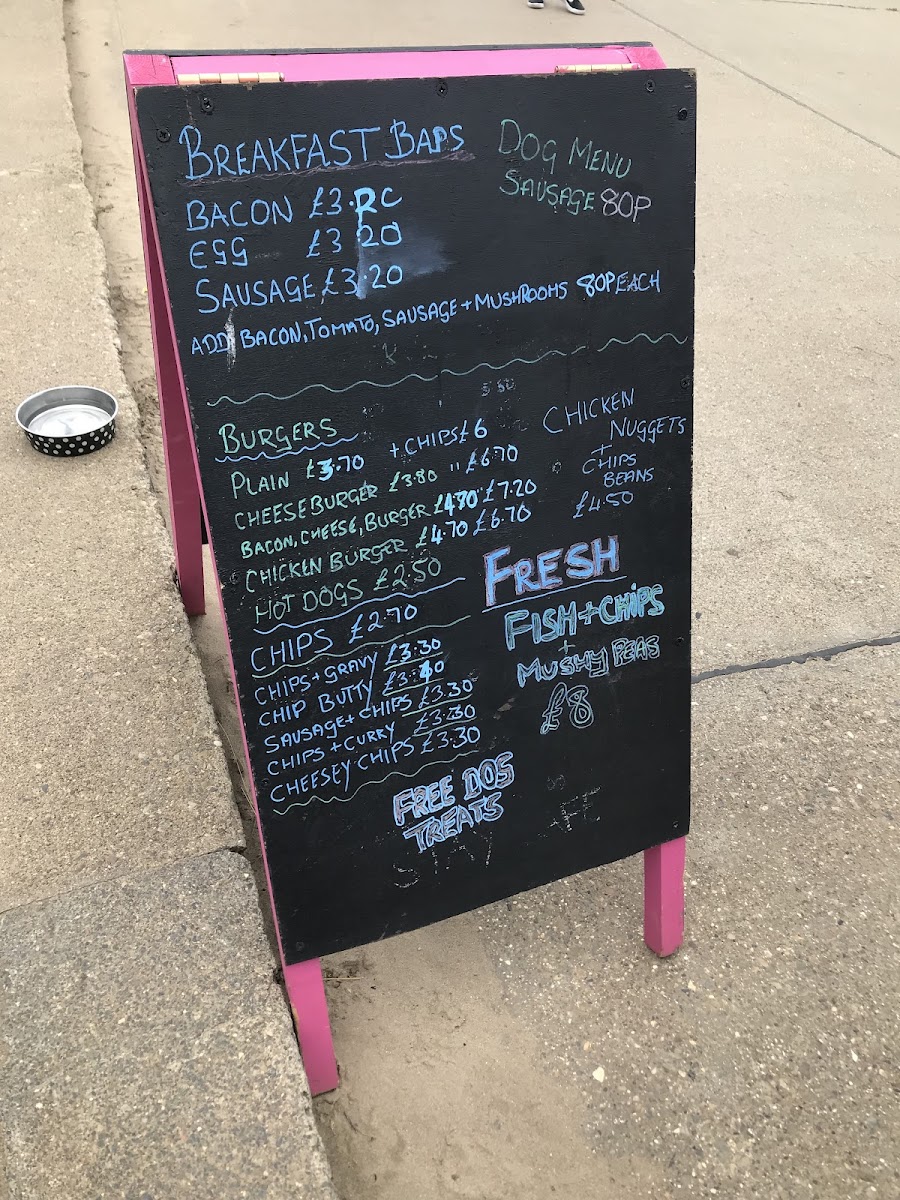 BREAKFAST BAPS
BACON £3.20
EGG £3 20
SAUSAGE £3.20
ADD BACON, TOMATO, SAUSAGE + MUSHROOMS 80P EACH
DOG MENU
SAUSAGE 80P
BURGERS
PLAIN £3.70 + CHIPS £6
CHEESEBURGER £3.80 " £6.70
BACON, CHEESE, BURGER £4.70 " £7.20
CHICKEN BURGER £4.70 £6.70
HOT DOGS £2.50
CHIPS £2.70
CHIPS + GRAVY £3.30
CHIP BUTTY
SAUSAGE + CHIPS £3.30
CHIPS + CURRY £3.30
CHEESEY CHIPS £3.30
CHICKEN
NUGGETS
+
CHIPS
BEANS
£4.50
FRESH
FISH + CHIPS
+
MUSHY PEAS
£8
FREE DOG
TREATS
STAY